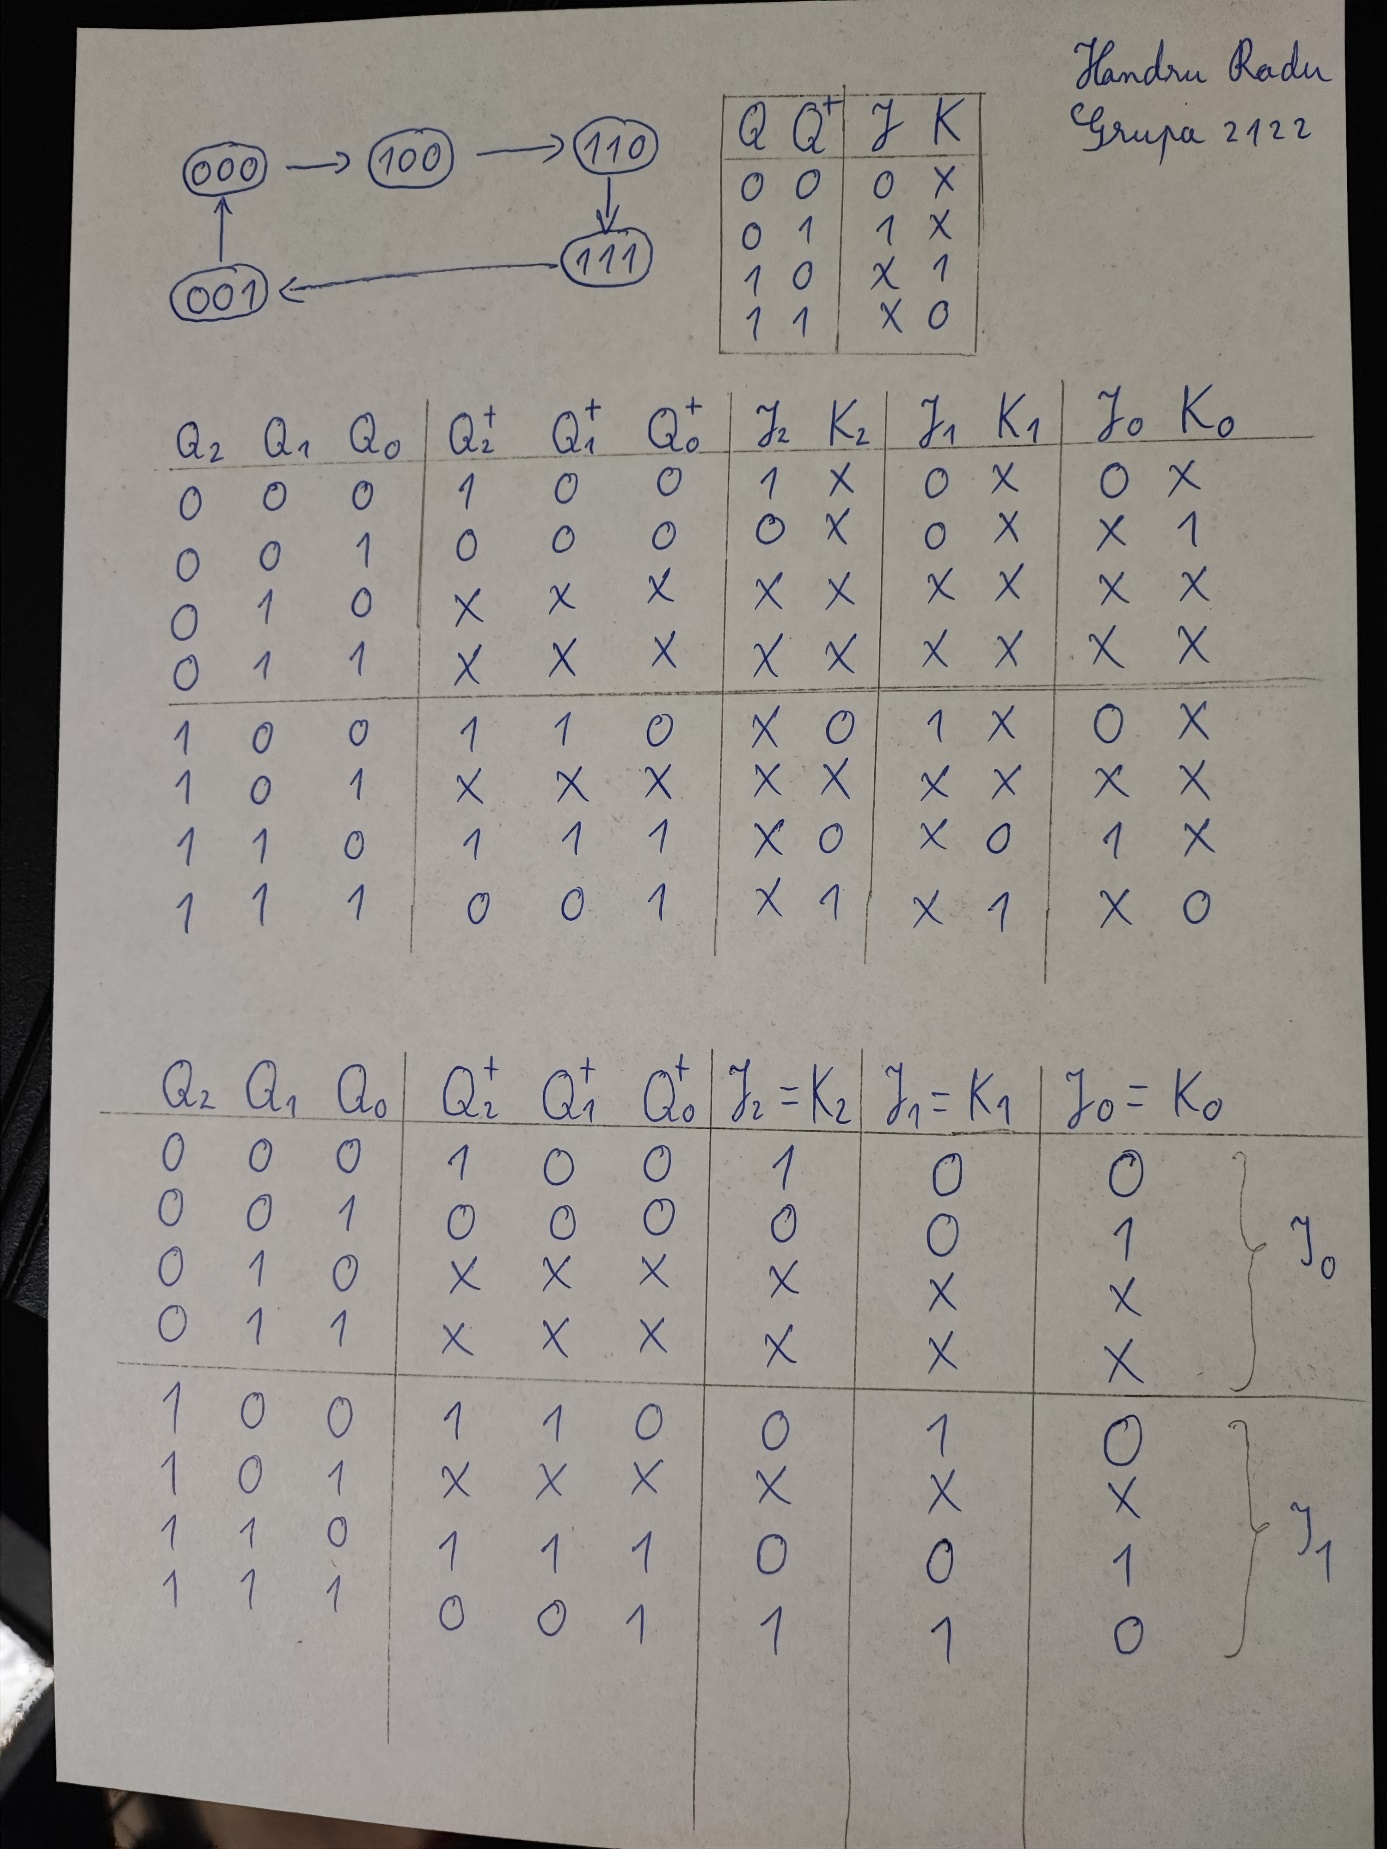 Handru Radu
Grupa 2122
000 → 100 → 110
001 ← 111
Q Q⁺ J K
0 0 0 X
0 1 1 X
1 0 X 1
1 1 X 0
Q₂ Q₁ Q₀ Q₂⁺ Q₁⁺ Q₀⁺ J₂ K₂ J₁ K₁ J₀ K₀
0 0 0 1 0 0 1 X 0 X 0 X
0 0 1 0 0 0 0 X 0 X X 1
0 1 0 X X X X X X X X X
0 1 1 X X X X X X X X X
1 0 0 1 1 0 X 0 1 X 0 X
1 0 1 X X X X X X X X X
1 1 0 1 1 1 X 0 X 0 1 X
1 1 1 0 0 1 X 1 X 1 X 0
Q₂ Q₁ Q₀ Q₂⁺ Q₁⁺ Q₀⁺ J₂=K₂ J₁=K₁ J₀=K₀
0 0 0 1 0 0 1 0 0
0 0 1 0 0 0 0 0 1
J₀
0 1 0 X X X X X X
0 1 1 X X X X X X
1 0 0 1 1 0 0 1 0
1 0 1 X X X X X X
J₁
1 1 0 1 1 1 0 0 1
1 1 1 0 0 1 1 1 0